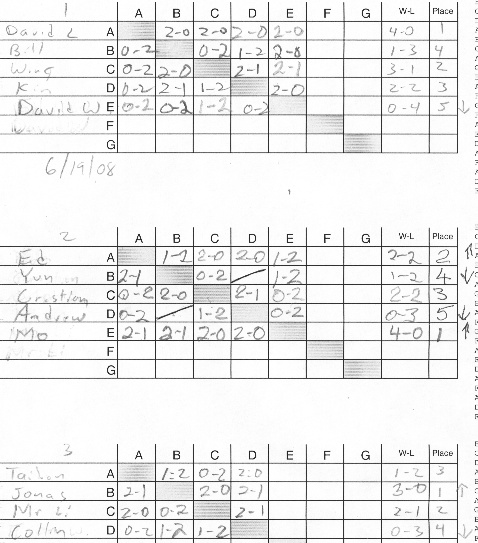 1
A B C D E F G W-L Place
David L A 2-0 2-0 2-0 2-0 4-0 1
Bill B 0-2 0-2 1-2 2-0 1-3 4
Wing C 0-2 2-0 2-1 2-1 3-1 2
Kin D 0-2 2-1 1-2 2-0 2-2 3
David W E 0-2 0-2 1-2 0-2 0-4 5 ↓
F
G
6/19/08
2
A B C D E F G W-L Place
Ed A 1-2 2-0 2-0 1-2 2-2 2 ↑
Yun B 2-1 0-2 1-2 1-2 4 ↓
Cristian C 0-2 2-0 2-1 0-2 2-2 3
Andrew D 0-2 1-2 0-2 0-3 5 ↓
Mo E 2-1 2-1 2-0 2-0 4-0 1 ↑
Mr Li F
G
3
A B C D E F G W-L Place
A 1-2 0-2 2-0 1-2 3
Jonas B 2-1 2-0 2-1 3-0 1 ↑
Mr Li C 2-0 0-2 2-1 2-1 2
D 0-2 1-2 1-2 0-3 4 ↓